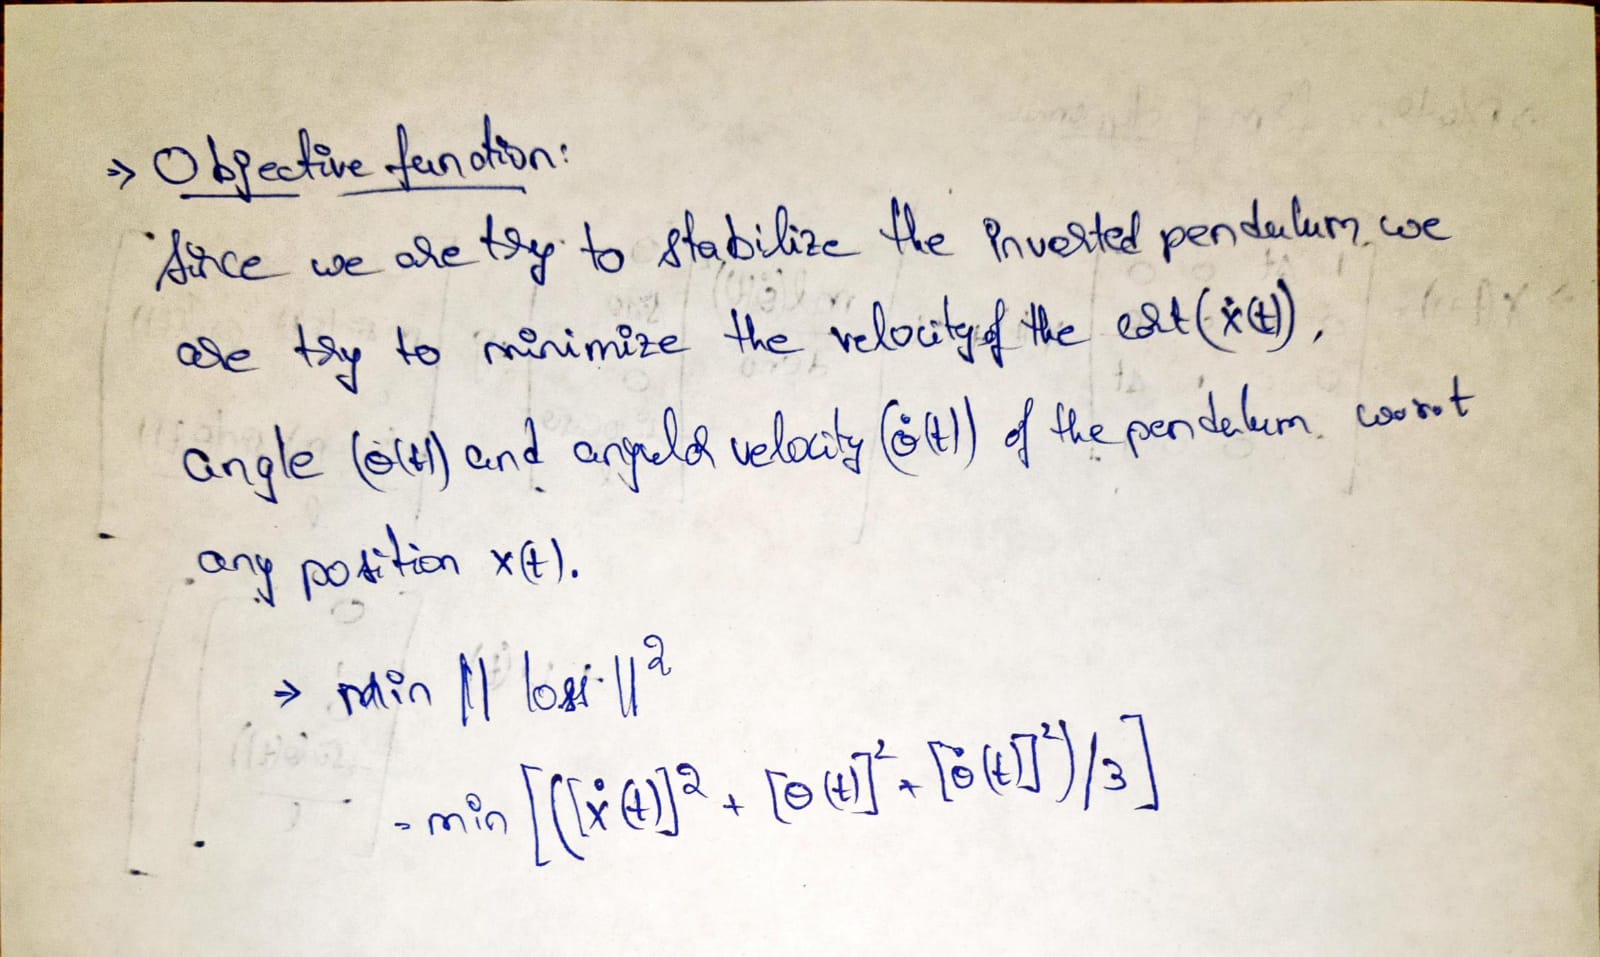 → Objective function:
Since we are try to stabilize the inverted pendulum, we
are try to minimize the velocity of the cart (ẋ(t)),
angle (θ̇(t)) and angular velocity (θ̇(t)) of the pendulum. w.r.t
any position x(t).
→ min || loss ||²
= min [([ẋ(t)]² + [θ(t)]² + [θ̇(t)]²)/3]